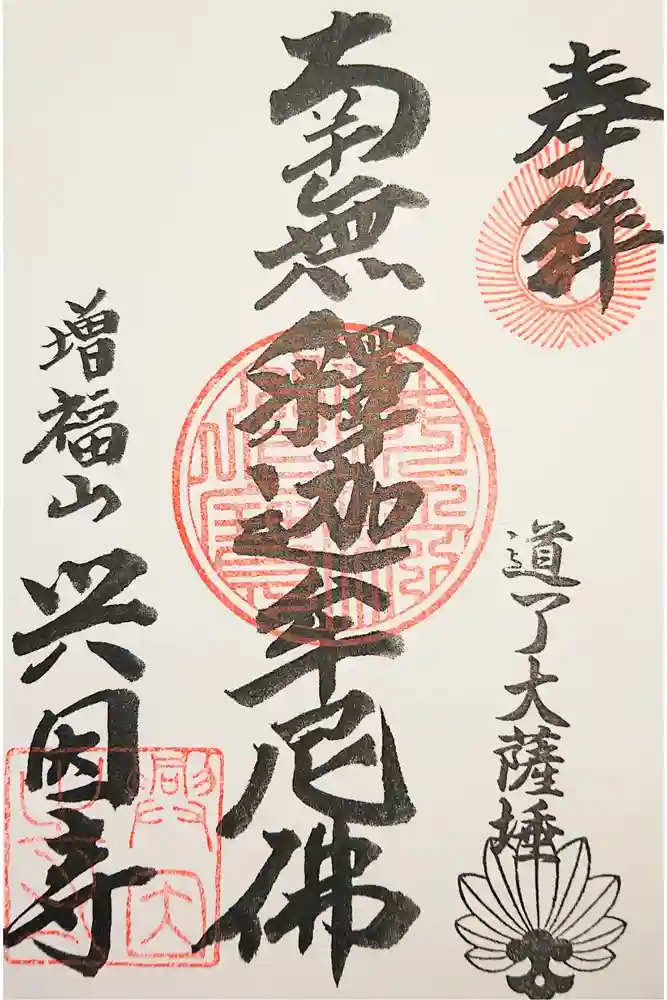 奉拝
道了大薩埵
南無釋迦牟尼佛
増福山
興因寺